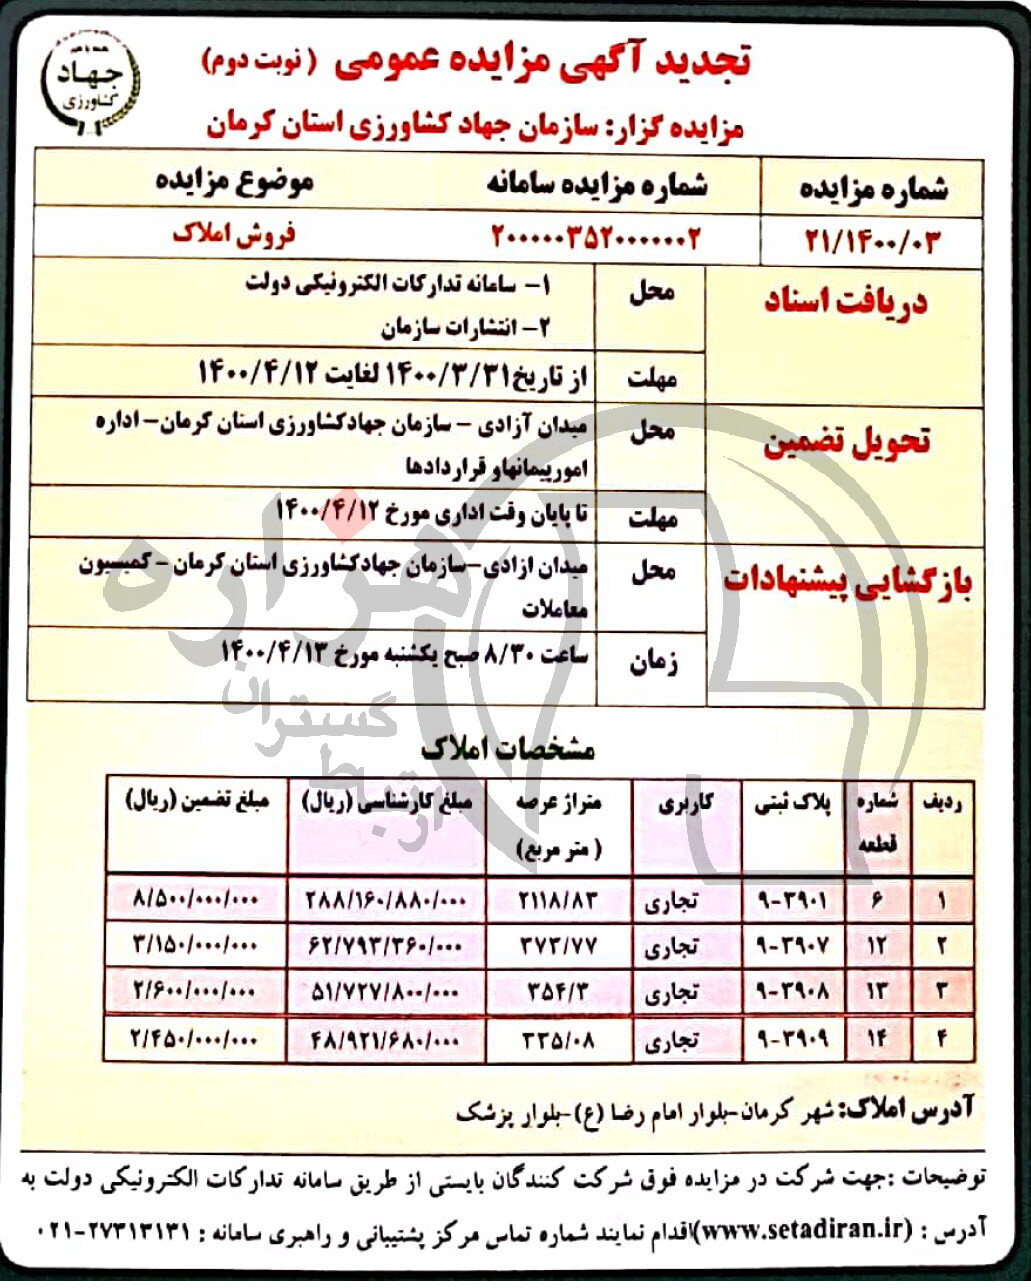 جهاد
کشاورزی
تجدید آگهی مزایده عمومی (نوبت دوم)
مزایده گزار: سازمان جهاد کشاورزی استان کرمان
شماره مزایده شماره مزایده سامانه موضوع مزایده
۲۱/۱۴۰۰/۰۳ ۲۰۰۰۰۰۳۵۲۰۰۰۰۰۰۲ فروش املاک
دریافت اسناد محل ۱- سامانه تدارکات الکترونیکی دولت
۲- انتشارات سازمان
مهلت از تاریخ ۱۴۰۰/۳/۳۱ لغایت ۱۴۰۰/۴/۱۲
تحویل تضمین محل میدان آزادی - سازمان جهادکشاورزی استان کرمان- اداره
امورپیمانهاو قراردادها
مهلت تا پایان وقت اداری مورخ ۱۴۰۰/۴/۱۲
بازگشایی پیشنهادات محل میدان ازادی-سازمان جهادکشاورزی استان کرمان - کمیسیون
معاملات
زمان ساعت ۸/۳۰ صبح یکشنبه مورخ ۱۴۰۰/۴/۱۳
هزاره
گستران
ارتباط
مشخصات املاک
ردیف شماره قطعه پلاک ثبتی کاربری متراژ عرصه (متر مربع) مبلغ کارشناسی (ریال) مبلغ تضمین (ریال)
۱ ۶ ۹-۳۹۰۱ تجاری ۲۱۱۸/۸۳ ۲۸۸/۱۶۰/۸۸۰/۰۰۰ ۸/۵۰۰/۰۰۰/۰۰۰
۲ ۱۲ ۹-۳۹۰۷ تجاری ۳۷۳/۷۷ ۶۲/۷۹۳/۳۶۰/۰۰۰ ۳/۱۵۰/۰۰۰/۰۰۰
۳ ۱۳ ۹-۳۹۰۸ تجاری ۳۵۴/۳ ۵۱/۷۲۷/۸۰۰/۰۰۰ ۲/۶۰۰/۰۰۰/۰۰۰
۴ ۱۴ ۹-۳۹۰۹ تجاری ۳۳۵/۰۸ ۴۸/۹۲۱/۶۸۰/۰۰۰ ۲/۴۵۰/۰۰۰/۰۰۰
آدرس املاک: شهر کرمان-بلوار امام رضا (ع)-بلوار پزشک
توضیحات :جهت شرکت در مزایده فوق شرکت کنندگان بایستی از طریق سامانه تدارکات الکترونیکی دولت به
آدرس : (www.setadiran.ir)اقدام نمایند شماره تماس مرکز پشتیبانی و راهبری سامانه : ۰۲۱-۲۷۳۱۳۱۳۱